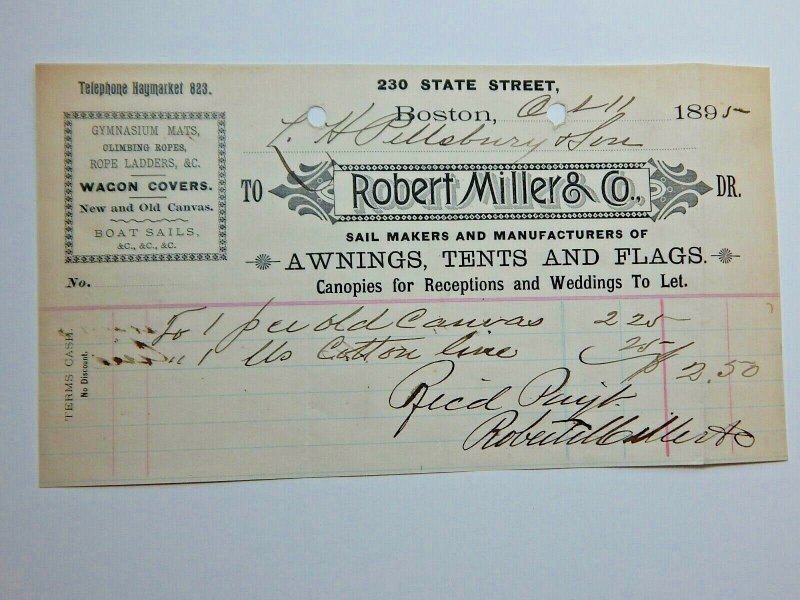 Telephone Haymarket 823.
230 STATE STREET,
Boston, Oct 11 1895
L. H Pillsbury & Son
GYMNASIUM MATS,
CLIMBING ROPES,
ROPE LADDERS, &C.
WAGON COVERS.
New and Old Canvas.
BOAT SAILS,
&C., &C., &C.
TO Robert Miller & Co., DR.
SAIL MAKERS AND MANUFACTURERS OF
AWNINGS, TENTS AND FLAGS.
Canopies for Receptions and Weddings To Let.
No.
TERMS CASH.
No Discount.
To 1 pce old Canvas 2 25
1 lb Cotton line 25 $ 2.50
Rec'd Paym't
Robert Miller & Co